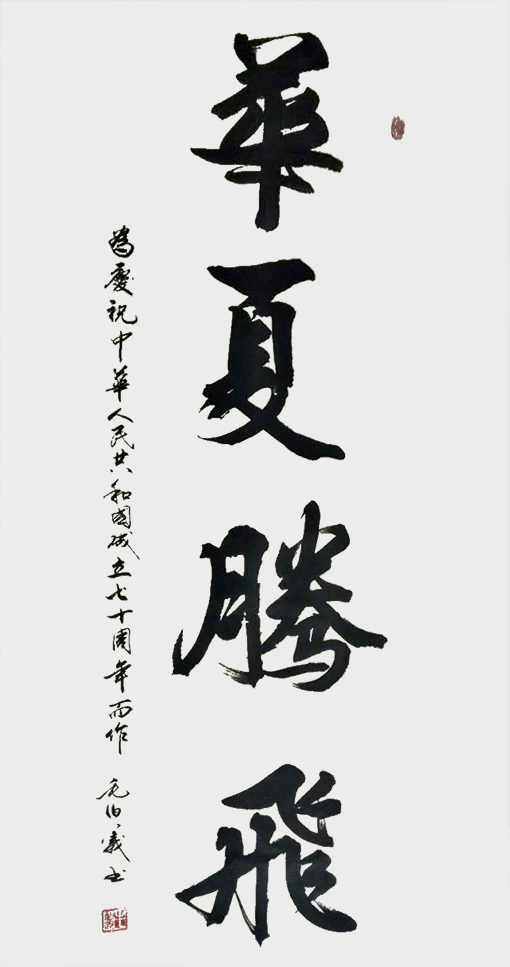 華夏騰飛
為慶祝中華人民共和國成立七十周年而作 毛伯義書